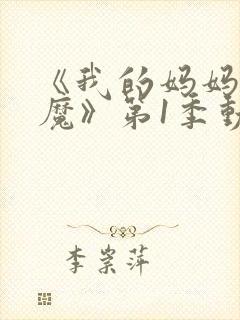 《我的妈妈
魔》第1季動
李崇萍